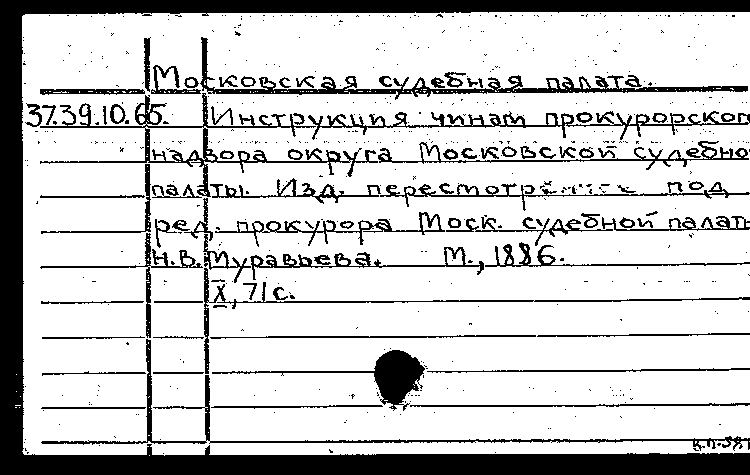 Московская судебная палата.
37.39.10.65. Инструкция чинам прокурорског
надзора округа Московской судебно
палаты. Изд. пересмотренное под
ред. прокурора Моск. судебной палаты
Н.В. Муравьева. М., 1886.
X, 71 с.